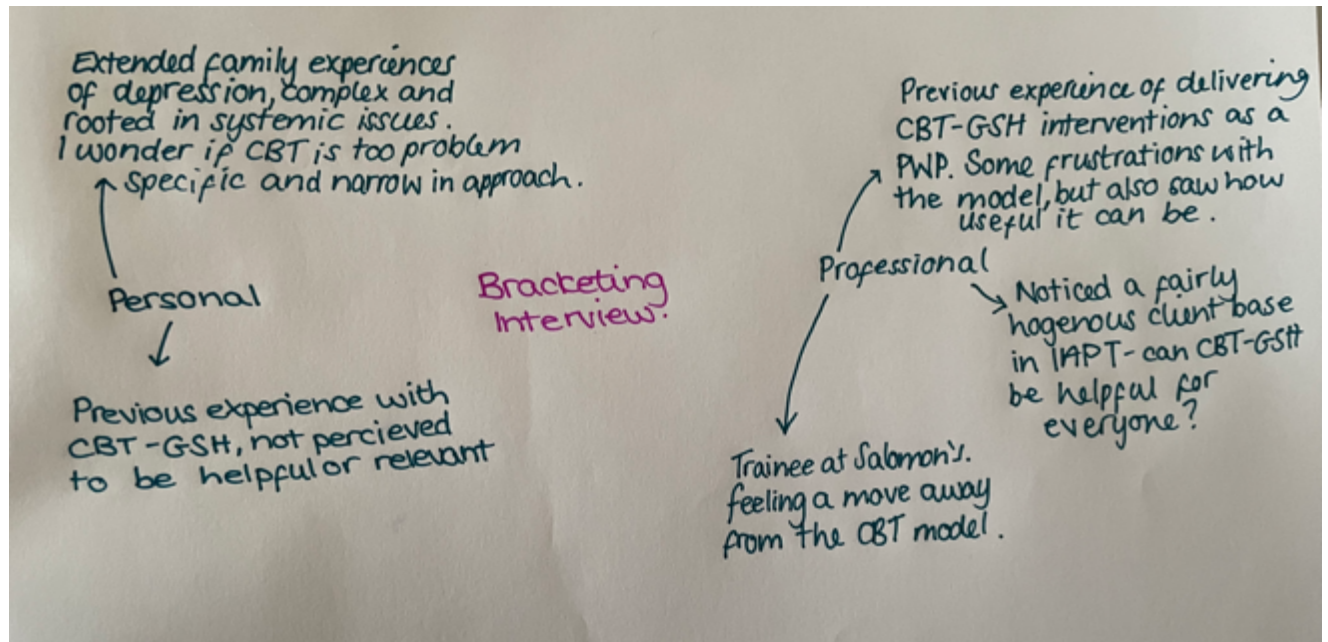 Extended family experiences
of depression, complex and
rooted in systemic issues.
I wonder if CBT is too problem
specific and narrow in approach.
Personal
Previous experience with
CBT-GSH, not percieved
to be helpful or relevant
Bracketing
Interview.
Previous experience of delivering
CBT-GSH interventions as a
PWP. Some frustrations with
the model, but also saw how
useful it can be.
Professional
Noticed a fairly
hogenous client base
in IAPT- can CBT-GSH
be helpful for
everyone?
Trainee at Salomon's.
feeling a move away
from the CBT model.